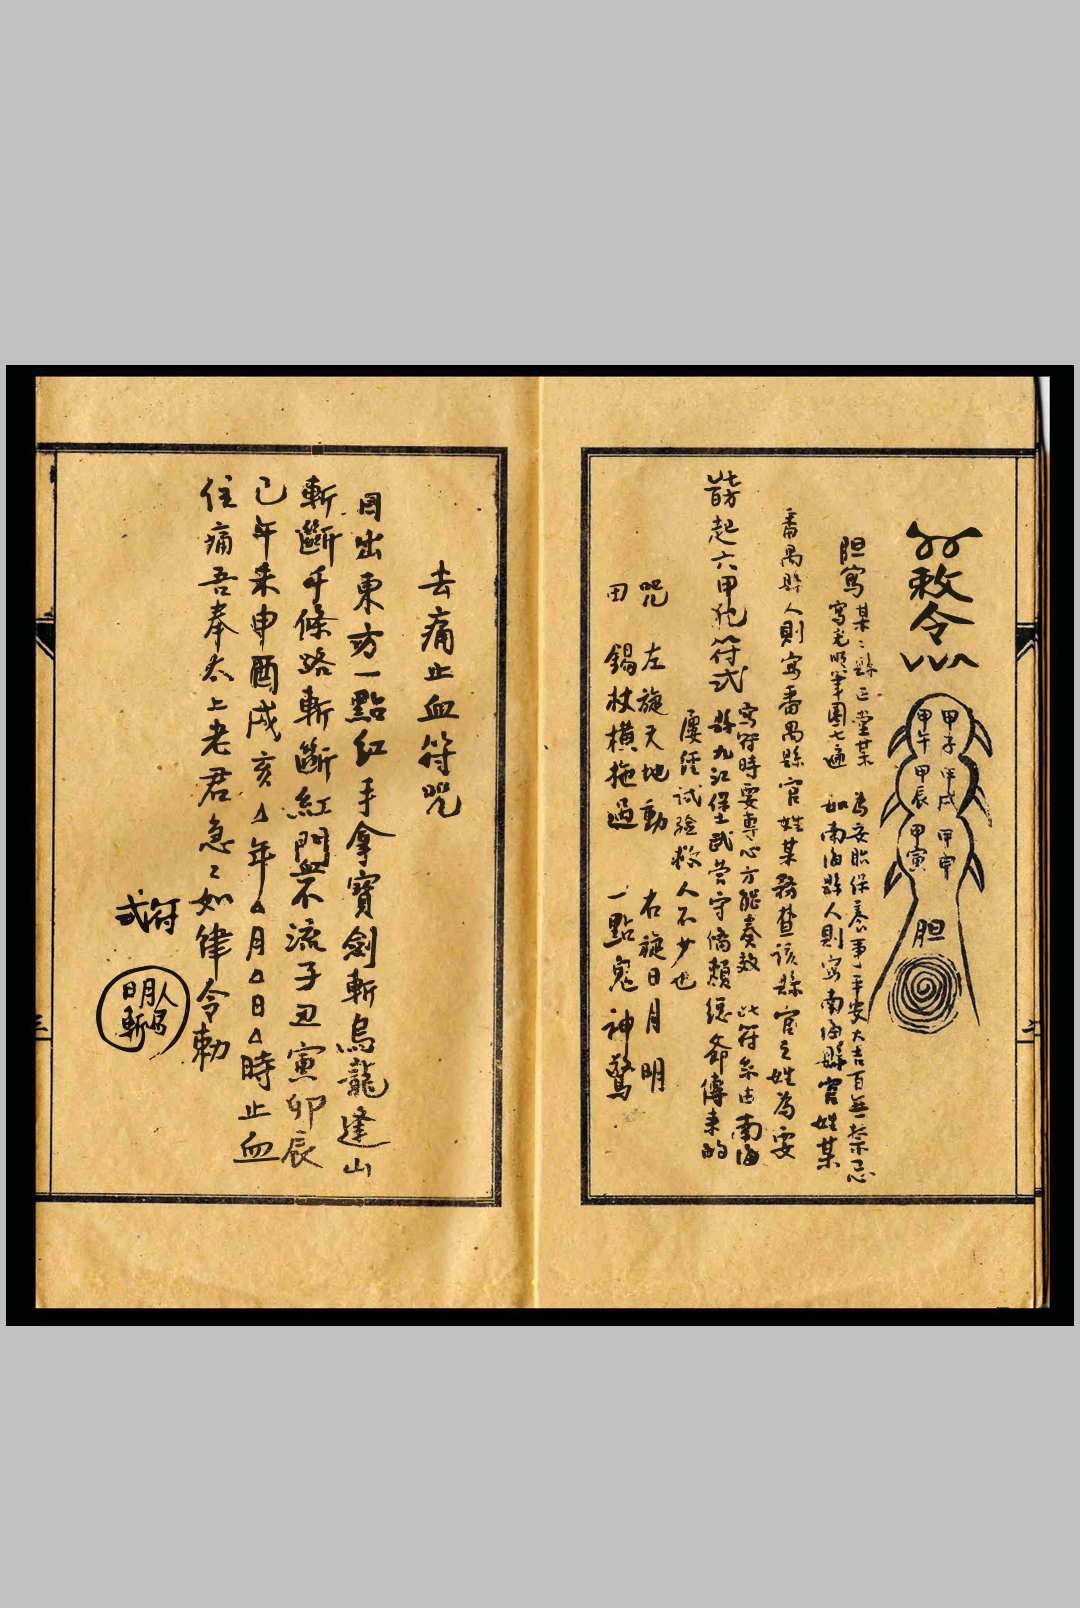 敕令
甲子 甲戌 甲申
甲午 甲辰 甲寅
胆
胆寫
某〻縣正堂某 為安胎保養事平安大吉百無禁忌
寫毛 筆圍七遍 如南海縣人則寫南海縣官姓某
番禺縣人則寫番禺縣官姓某務查該縣官之姓為要
起六甲 符式
寫符時要專心方能奏效 此符系由南海
縣九江保士武營守備 總爺傳來的
屢經試驗救人不少也
咒 左旋天地動 右旋日月明
田 錫杖橫拖過 一點鬼神驚
二
去痛止血符咒
日出東方一點紅手拿寶劍斬烏龍逢山
斬斷千條路斬斷紅門血不流子丑寅卯辰
巳午未申酉戌亥△年△月△日△時止血
住痛吾奉太上老君急〻如律令勅
符式
日月人
斬
三